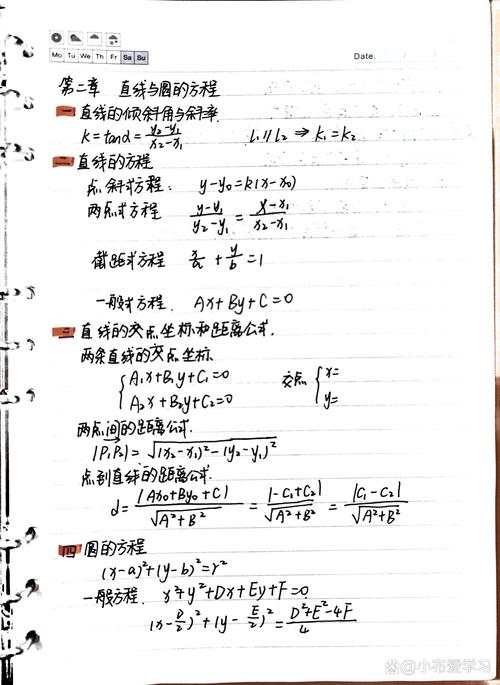 Mo Tu We Th Fr Sa Su
Date.
第二章 直线与圆的方程
一 直线的倾斜角与斜率
k=tanα=\frac{y₂-y₁}{x₂-x₁} l₁∥l₂ ⇒ k₁=k₂
二 直线的方程
点斜式方程: y-y₀=k(x-x₀)
两点式方程 \frac{y-y₁}{y₂-y₁}=\frac{x-x₁}{x₂-x₁}
截距式方程 \frac{x}{a}+\frac{y}{b}=1
一般式方程. Ax+By+C=0
三 直线的交点坐标和距离公式.
两条直线的交点坐标
{A₁x+B₁y+C₁=0 交点 {x=
A₂x+B₂y+C₂=0 y=
两点间的距离公式.
|P₁P₂|=√(x₂-x₁)²-(y₂-y₁)²
点到直线的距离公式.
d=\frac{|Ax₀+By₀+C|}{√A²+B²}=\frac{|-C₁+C₂|}{√A²+B²}=\frac{|C₁-C₂|}{√A²+B²}
四 圆的方程
(x-a)²+(y-b)²=r²
一般方程. x²+y²+Dx+Ey+F=0
(x-\frac{D}{2})²+(y-\frac{E}{2})²=\frac{D²+E²-4F}{4}
小布爱学习